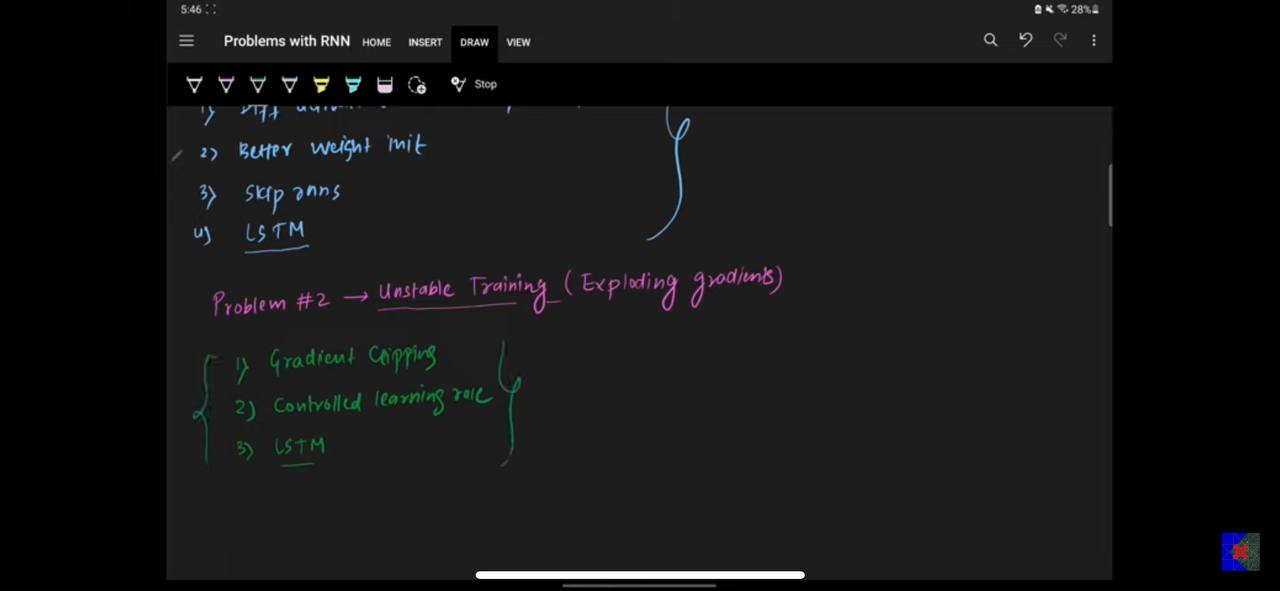 5:46
28%
Problems with RNN HOME INSERT DRAW VIEW
Stop
1) Diff
2) Better weight init
3) Skip rnns
4) LSTM
Problem #2 → Unstable Training (Exploding gradients)
1) Gradient Clipping
2) Controlled learning rate
3) LSTM